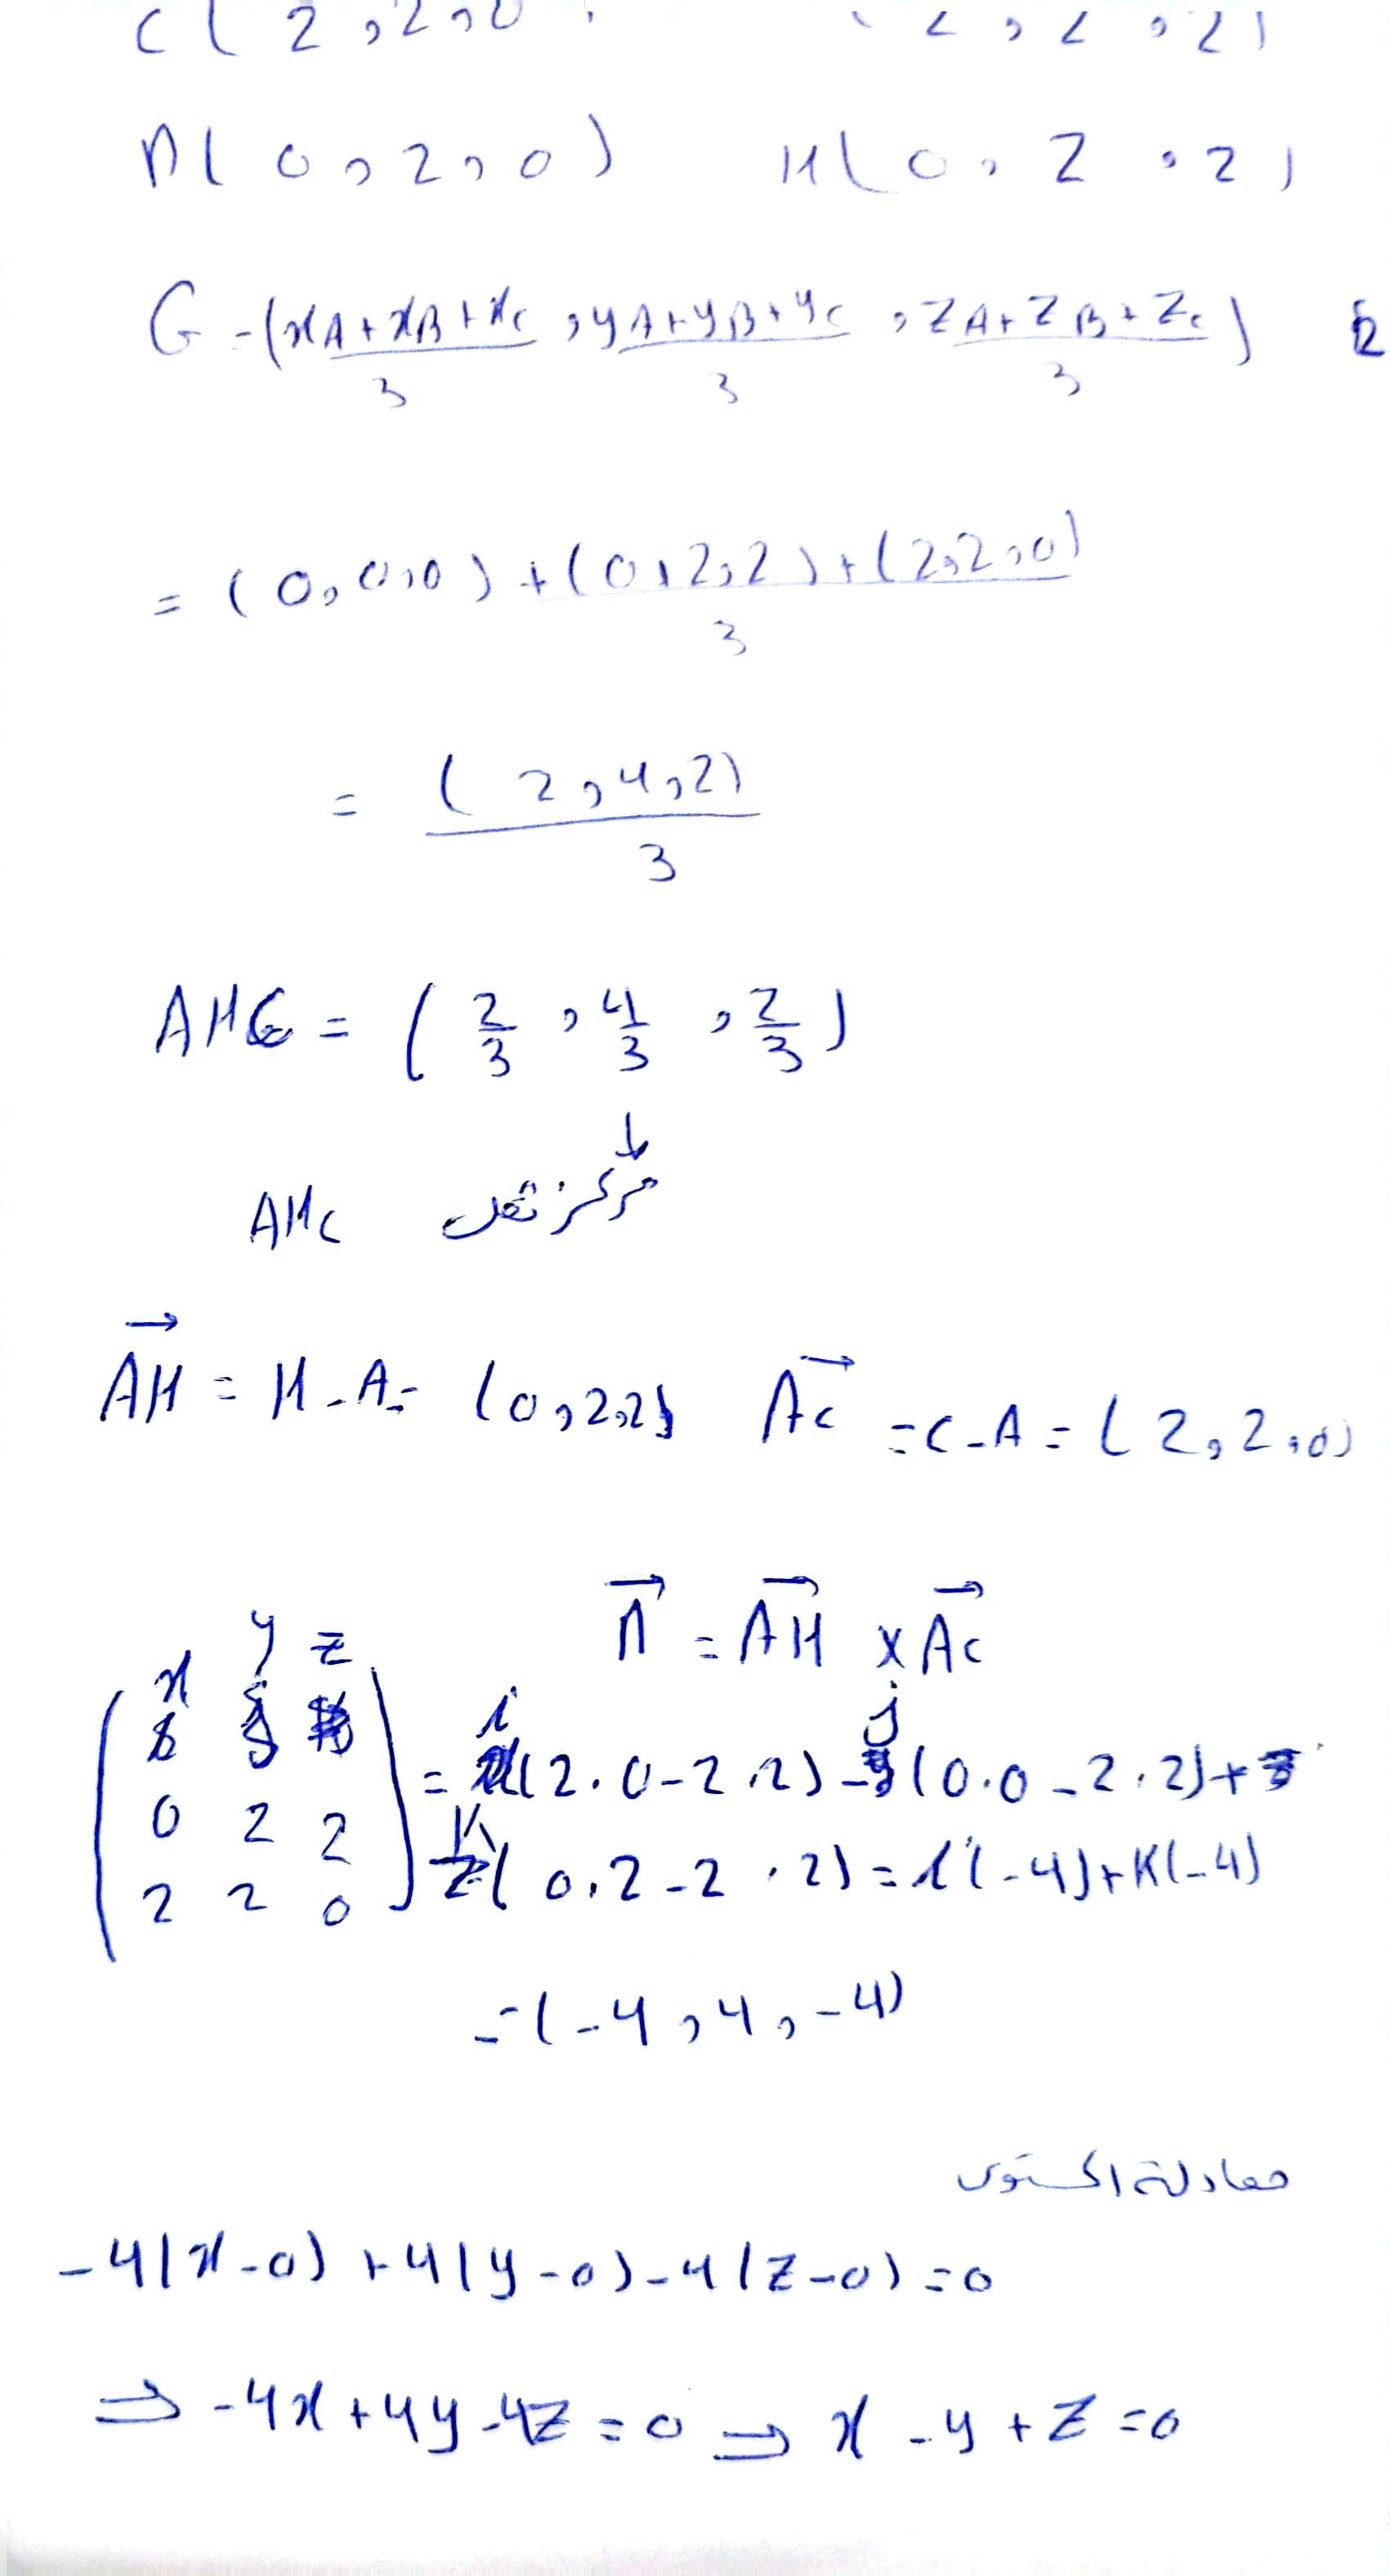 C(2,2,0 (2,2,2)
D(0,2,0) H(0,2,2)
G=(xA+xB+xC/3, yA+yB+yC/3, zA+zB+zC/3) 2
=(0,0,0)+(0,2,2)+(2,2,0)/3
=(2,4,2)/3
AHC=(2/3, 4/3, 2/3)
↓
مركز ثقل AHC
AH→=H-A=(0,2,2) AC→=C-A=(2,2,0)
n→=AH→×AC→
x y z
0 2 2
2 2 0
=i(2.0-2.2)-j(0.0-2.2)+
k(0.2-2.2)=i(-4)+K(-4)
=(-4,4,-4)
معادلة المستوى
-4(x-0)+4(y-0)-4(z-0)=0
⇒-4x+4y-4z=0⇒x-y+z=0